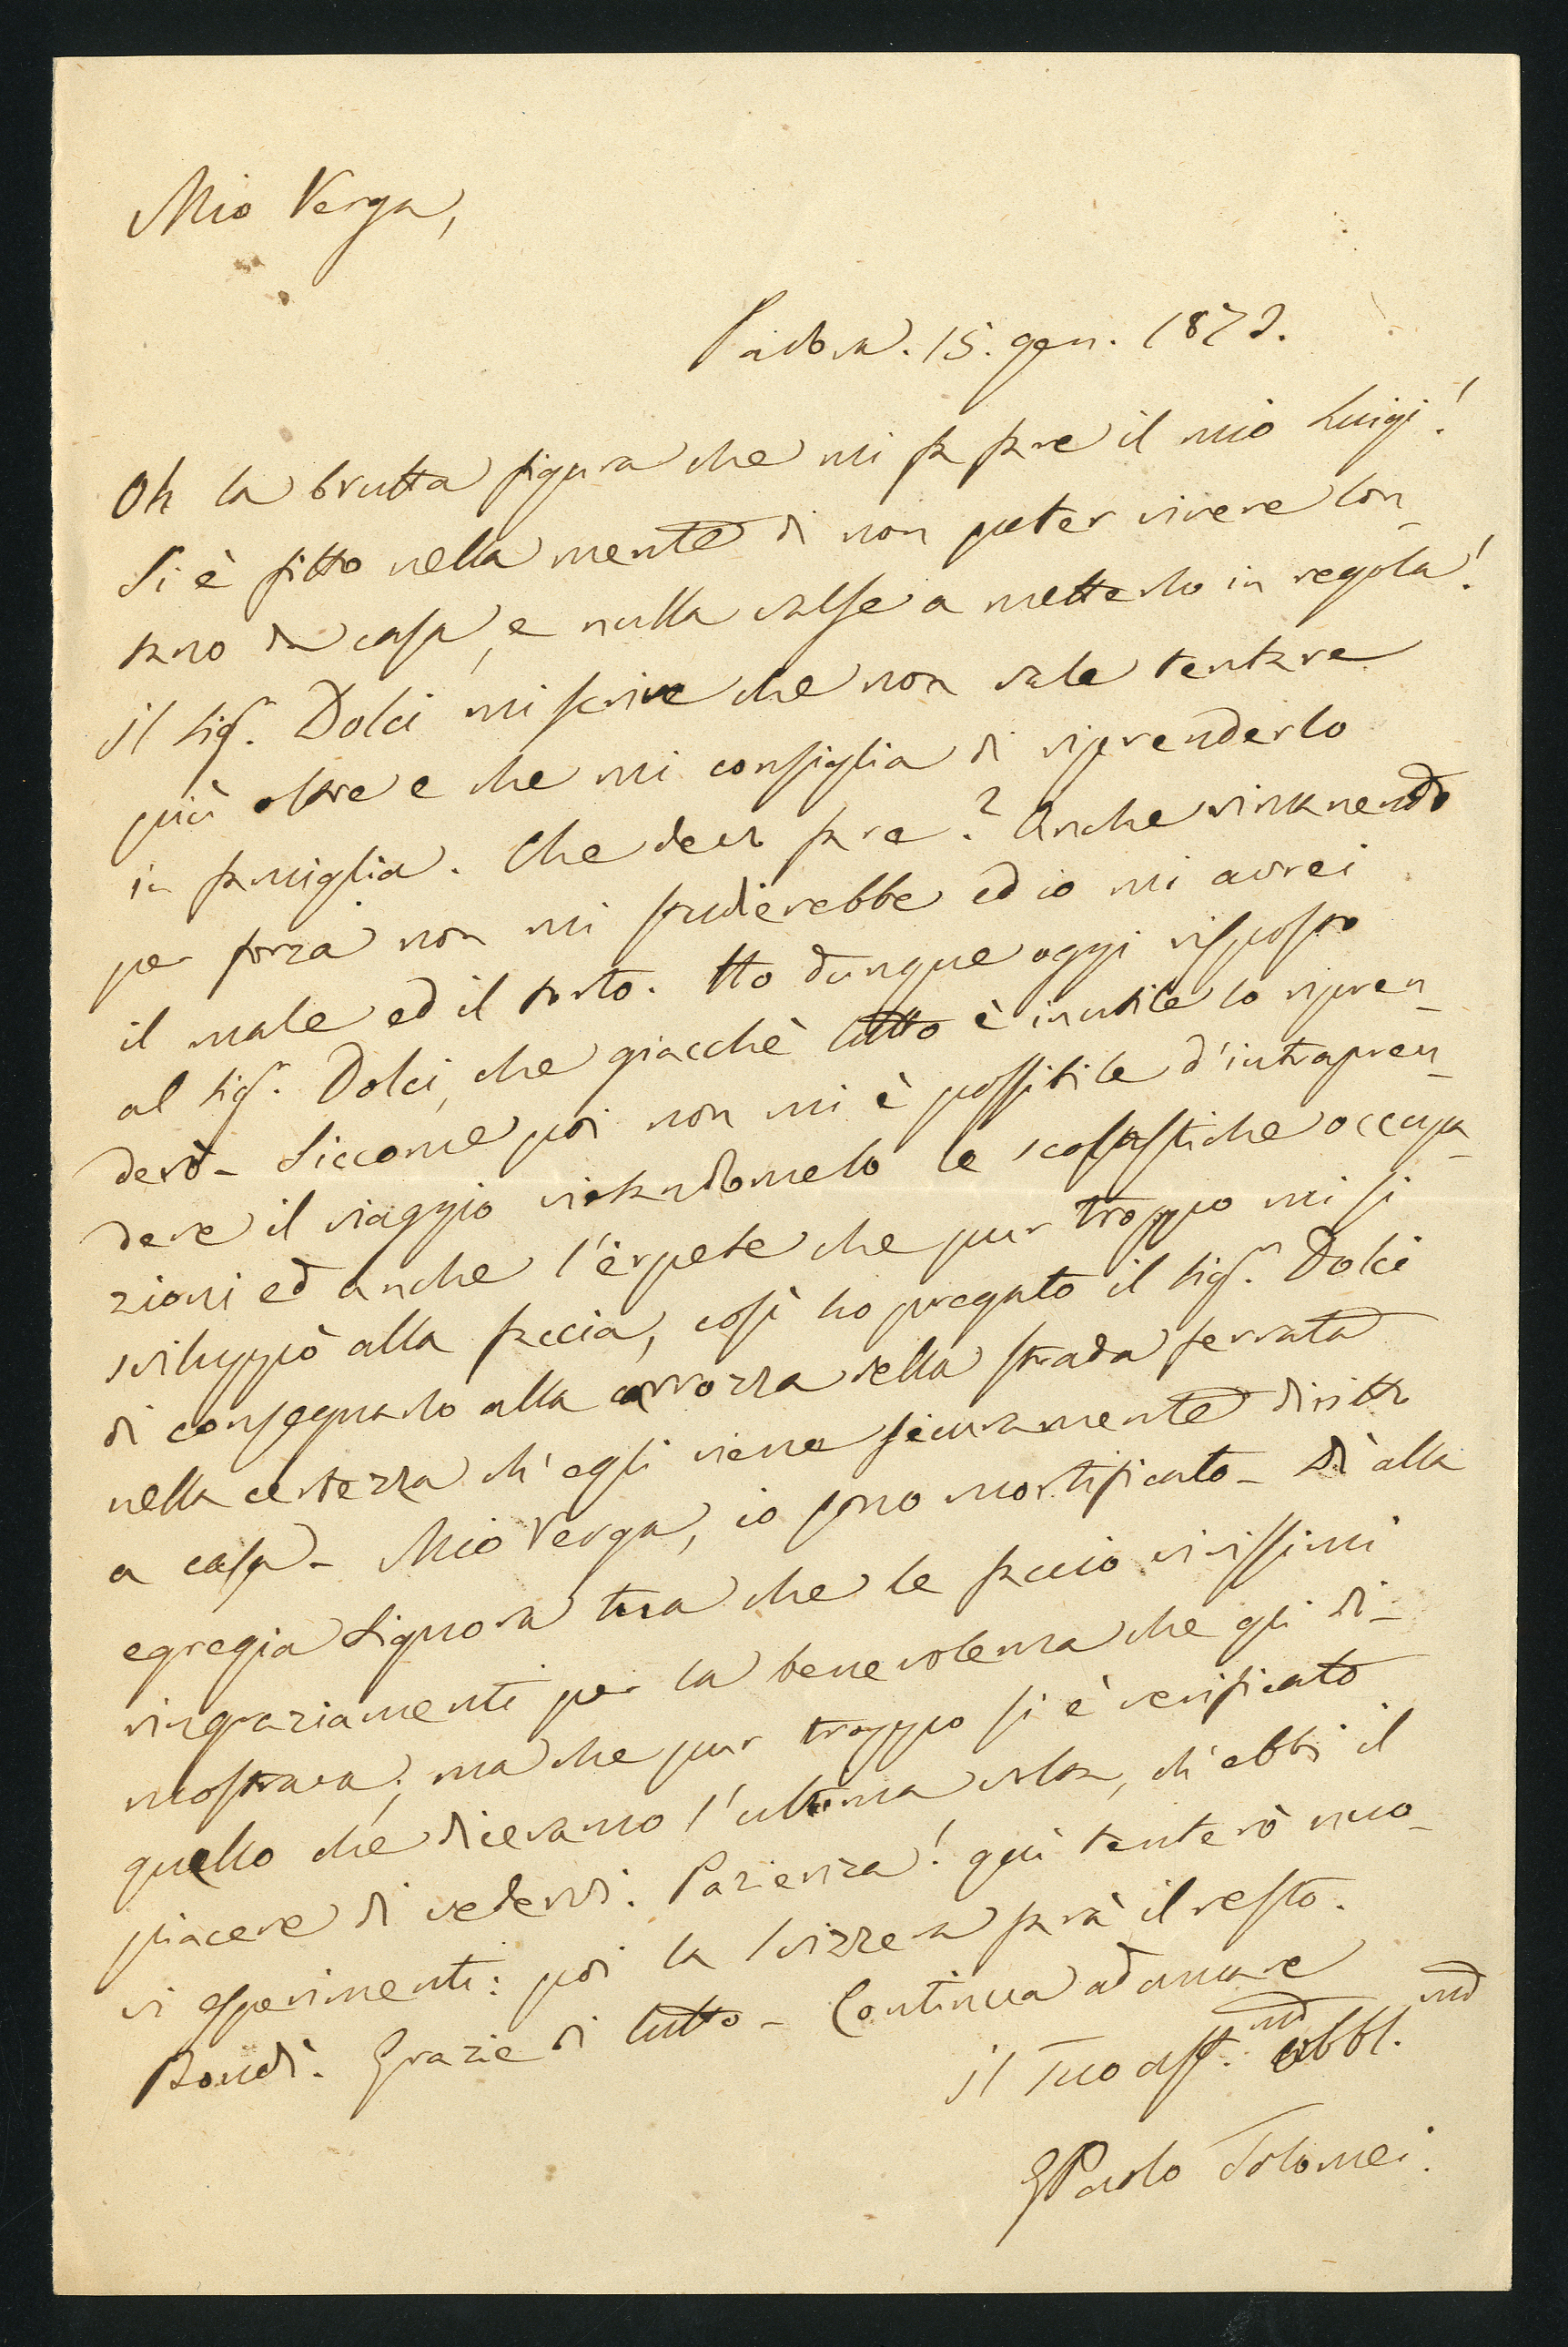 Mio Verga,
Padova. 15. gen. 1872.
Oh la brutta figura che mi fa fare il mio Luigi!
Si è fitto nella mente di non poter vivere lon-
tano da casa, e nulla valse a metterlo in regola!
Il Sigr. Dolci mi scrive che non vale tentare
più oltre e che mi consiglia di riprenderlo
in famiglia. Che devo fare? Anche rimanendo
per forza non mi studierebbe ed io mi avrei
il male ed il torto. Ho dunque oggi risposto
al Sigr. Dolci, che giacchè tutto è inutile lo ripren-
derò - Siccome poi non mi è possibile d'intrapren-
dere il viaggio vietandomelo le scolastiche occupa-
zioni ed anche l'erpete che pur troppo mi si
sviluppò alla faccia, così ho pregato il Sigr. Dolci
di consegnarlo alla carrozza della strada ferrata
nella certezza ch'egli viene sicuramente diritto
a casa - Mio Verga, io sono mortificato - Dì alla
egregia Signora tua che le faccio vivissimi
ringraziamenti per la benevolenza che gli di-
mostrava; ma che pur troppo si è verificato
quello che dicevamo l'ultima volta, ch'ebbi il
piacere di vederVi. Pazienza! quì tenterò nuo-
vi esperimenti: poi la Svizzera farà il resto.
Bondì. Grazie di tutto - Continua ad amare
il Tuo aff.mo obbl.mo
GPaolo Tolomei.